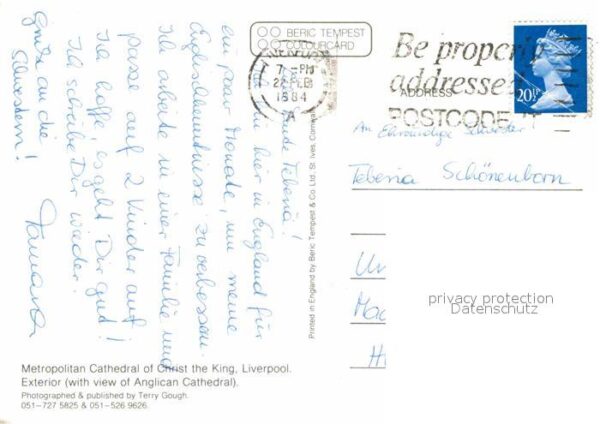 BERIC TEMPEST
COLOURCARD
7 - PM
22 FEB
1984
A
Be properly
addressed
POSTCODE
ADDRESS
20½P
Liebe Teberia!
Ich bin hier in England für
ein paar Monate, um meine
Englischkenntnisse zu verbessern.
Ich arbeite in einer Familie und
passe auf 2 Kinder auf!
Ich hoffe, es geht Dir gut!
Ich schreibe Dir wieder.
Grüße an die
Schwestern!
Tamara
Printed in England by Beric Tempest & Co. Ltd., St. Ives, Cornwall
An Ehrwürdige Schwester!
Teberia Schönenborn
Un
Mac
H
privacy protection
Datenschutz
Metropolitan Cathedral of Christ the King, Liverpool.
Exterior (with view of Anglican Cathedral).
Photographed & published by Terry Gough.
051-727 5825 & 051-526 9626.